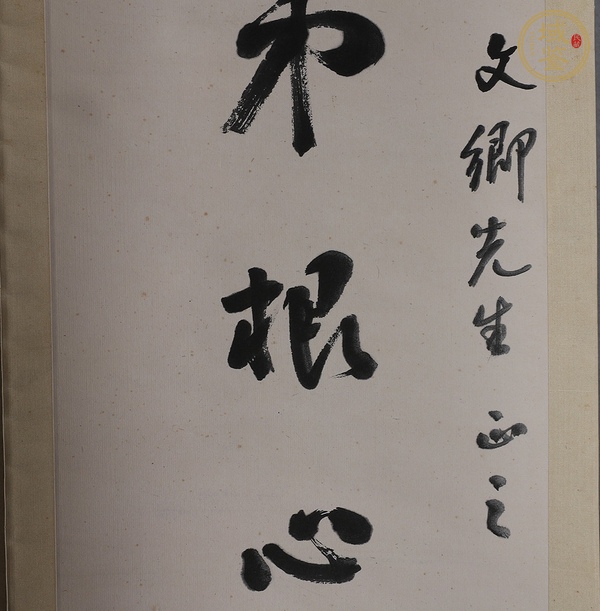 文卿先生正之
根心